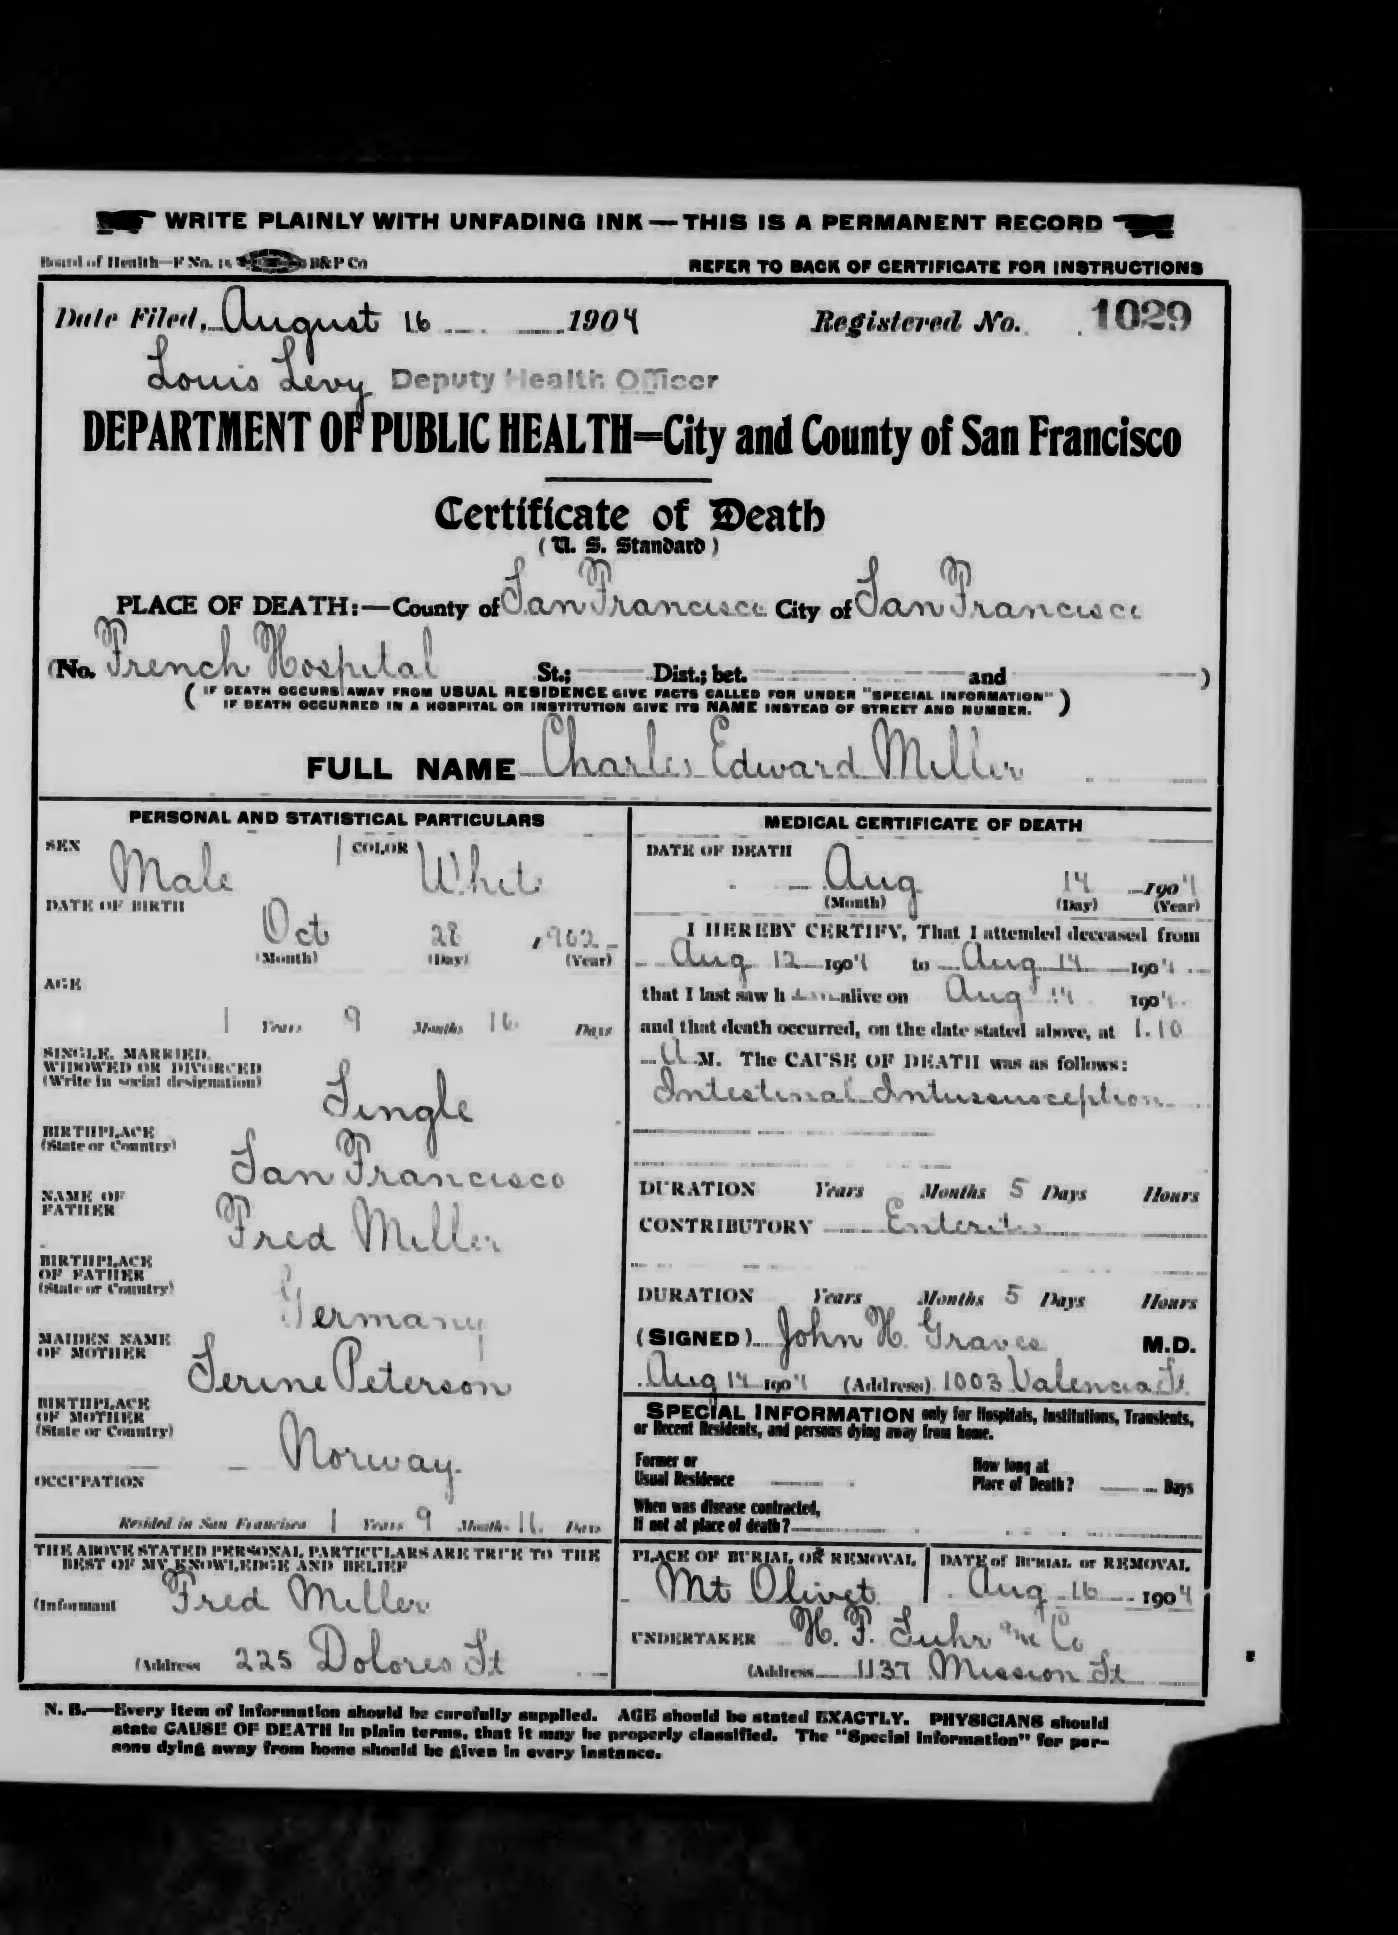 WRITE PLAINLY WITH UNFADING INK — THIS IS A PERMANENT RECORD
Board of Health—F No. 15 B&P Co
REFER TO BACK OF CERTIFICATE FOR INSTRUCTIONS
Date Filed, August 16 1904 Registered No. 1029
Louis Levy Deputy Health Officer
DEPARTMENT OF PUBLIC HEALTH—City and County of San Francisco
Certificate of Death
(U. S. Standard)
PLACE OF DEATH:—County of San Francisco City of San Francisco
(No. French Hospital St.; Dist.; bet. and )
(IF DEATH OCCURS AWAY FROM USUAL RESIDENCE GIVE FACTS CALLED FOR UNDER "SPECIAL INFORMATION"
IF DEATH OCCURRED IN A HOSPITAL OR INSTITUTION GIVE ITS NAME INSTEAD OF STREET AND NUMBER.)
FULL NAME Charles Edward Miller
PERSONAL AND STATISTICAL PARTICULARS
SEX Male COLOR White
DATE OF BIRTH
Oct 28 1902
(Month) (Day) (Year)
AGE
1 Years 9 Months 16 Days
SINGLE, MARRIED,
WIDOWED OR DIVORCED
(Write in social designation)
Single
BIRTHPLACE
(State or Country)
San Francisco
NAME OF
FATHER
Fred Miller
BIRTHPLACE
OF FATHER
(State or Country)
Germany
MAIDEN NAME
OF MOTHER
Serine Peterson
BIRTHPLACE
OF MOTHER
(State or Country)
Norway
OCCUPATION
Resided in San Francisco 1 Years 9 Months 16 Days
THE ABOVE STATED PERSONAL PARTICULARS ARE TRUE TO THE
BEST OF MY KNOWLEDGE AND BELIEF
(Informant Fred Miller
(Address 225 Dolores St
MEDICAL CERTIFICATE OF DEATH
DATE OF DEATH
Aug 14 1904
(Month) (Day) (Year)
I HEREBY CERTIFY, That I attended deceased from
Aug 12 1904 to Aug 14 1904
that I last saw h alive on Aug 14 1904
and that death occurred, on the date stated above, at 1.10
A M. The CAUSE OF DEATH was as follows:
Intestinal Intussusception
DURATION Years Months 5 Days Hours
CONTRIBUTORY Enteritis
DURATION Years Months 5 Days Hours
(SIGNED) John H. Graves M.D.
Aug 14 1904 (Address) 1003 Valencia St
SPECIAL INFORMATION only for Hospitals, Institutions, Transients,
or Recent Residents, and persons dying away from home.
Former or
Usual Residence
How long at
Place of Death? Days
When was disease contracted,
If not at place of death?
PLACE OF BURIAL OR REMOVAL
Mt Olivet
DATE of BURIAL or REMOVAL
Aug 16 1904
UNDERTAKER H. F. Suhr and Co
(Address 1137 Mission St
N. B.—Every item of information should be carefully supplied. AGE should be stated EXACTLY. PHYSICIANS should
state CAUSE OF DEATH in plain terms, that it may be properly classified. The "Special Information" for per-
sons dying away from home should be given in every instance.